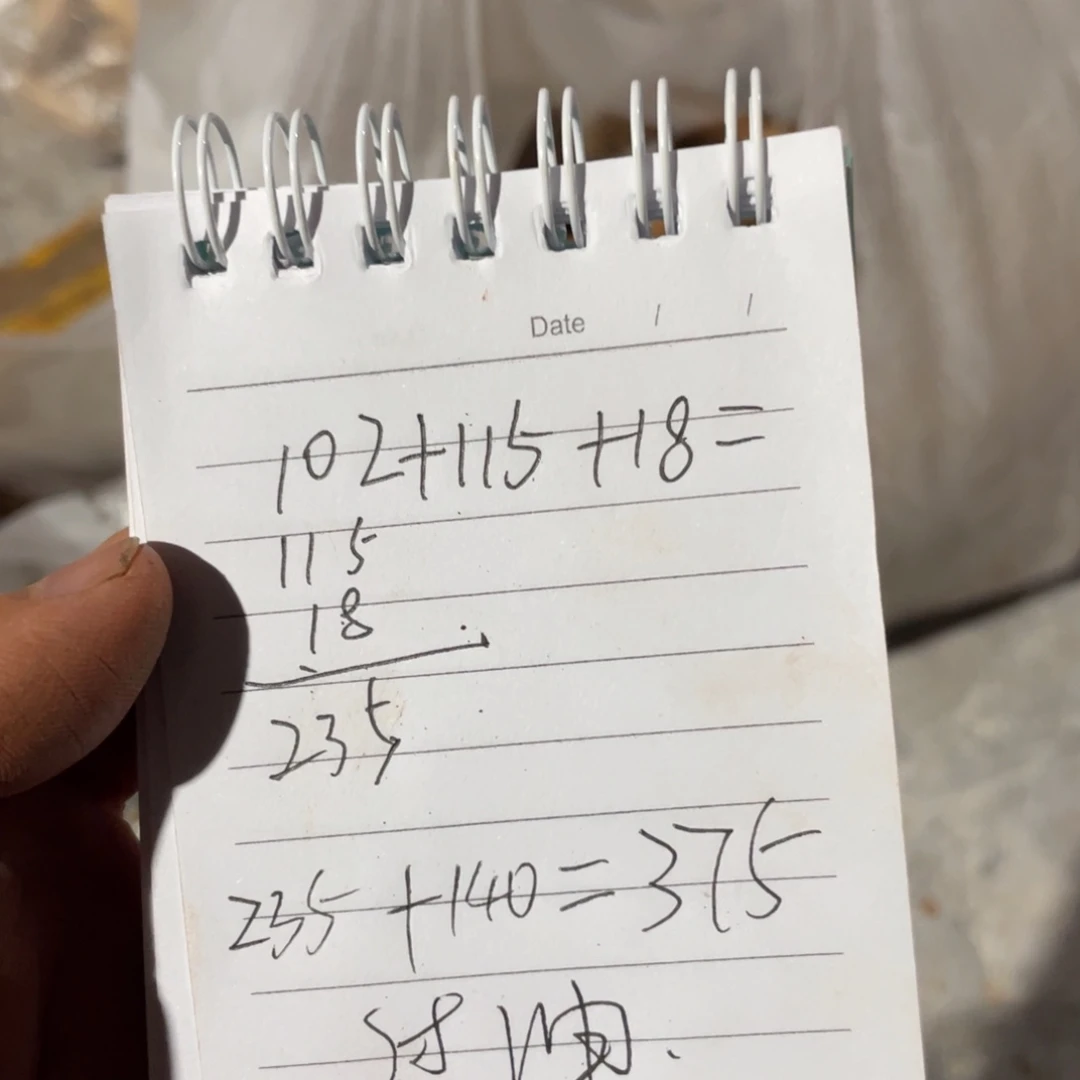 Date / /
102+115+18=
115
18
235
235+140=375